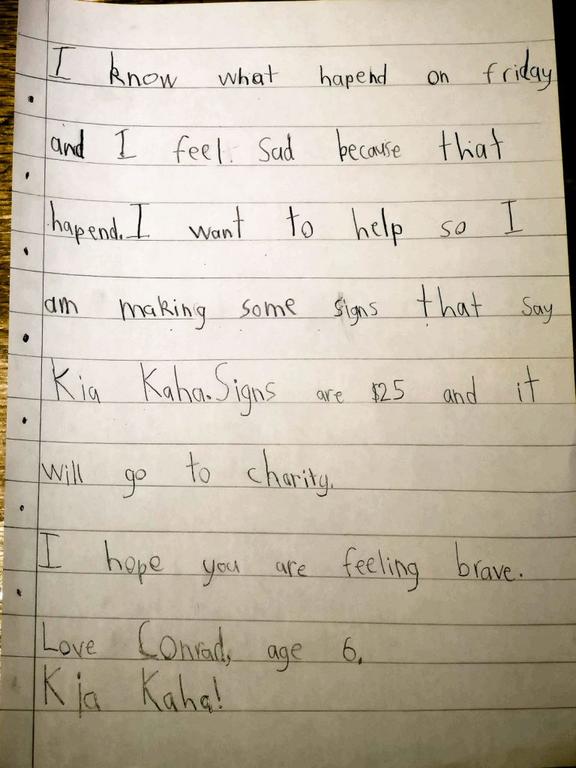 I know what hapend on friday
and I feel. Sad because that
hapend. I want to help so I
am making some signs that say
Kia Kaha. Signs are $25 and it
will go to charity.
I hope you are feeling brave.
Love Conrad, age 6.
Kia Kaha!